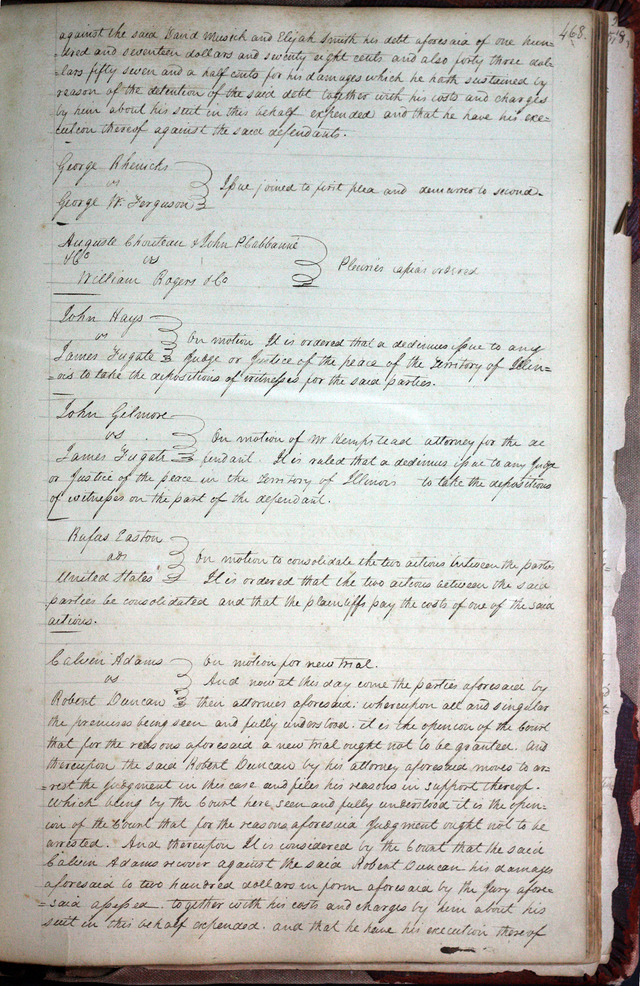 468.
against the said David Musick and Elijah Smith his debt aforesaid of one hun-
dred and seventeen dollars and twenty eight cents and also forty three dol-
lars fifty seven and a half cents for his damages which he hath sustained by
reason of the detention of the said debt together with his costs and charges
by him about his suit in this behalf expended and that he have his exe-
cution thereof against the said defendants.
George Rhenicks
vs
George W. Ferguson
Issue joined to first plea and demurrer to second.
Auguste Chouteau & John P Cabbanne
& Co vs
William Rogers & Co
Pleuries capias ordered
John Hays
vs On motion It is ordered that a dedimus issue to any
James Fugate Judge or Justice of the peace of the Territory of Illin-
=ois to take the depositions of witnesses for the said parties.
John Gelmore
vs. On motion of Mr Hempstead attorney for the de
James Fugate fendant. It is ruled that a dedimus issue to any Judge
or Justice of the peace in the Territory of Illinois to take the depositions
of witnesses on the part of the defendant.
Rufas Easton
ads On motion to consolidate the two actions between the parties
United States It is ordered that the two actions between the said
parties be consolidated and that the plaintiffs pay the costs of one of the said
actions.
Calvin Adams On motion for new trial.
vs And now at this day come the parties aforesaid by
Robert Duncan their attornies aforesaid: whereupon all and singular
the premises being seen and fully understood. it is the openion of the Court
that for the reasons aforesaid a new trial ought not to be granted. And
thereupon the said Robert Duncan by his attorney aforesaid moves to ar-
rest the Judgment in this case and files his reasons in support thereof.
Which being by the Court here seen and fully understood it is the open-
ion of the Court that for the reasons aforesaid Judgment ought not to be
arrested. And thereupon It is considered by the Court that the said
Calvin Adams recover against the said Robert Duncan his damages
aforesaid to two hundred dollars in form aforesaid by the Jury afore-
=said assessed. together with his costs and charges by him about his
suit in this behalf expended. and that he have his execution thereof